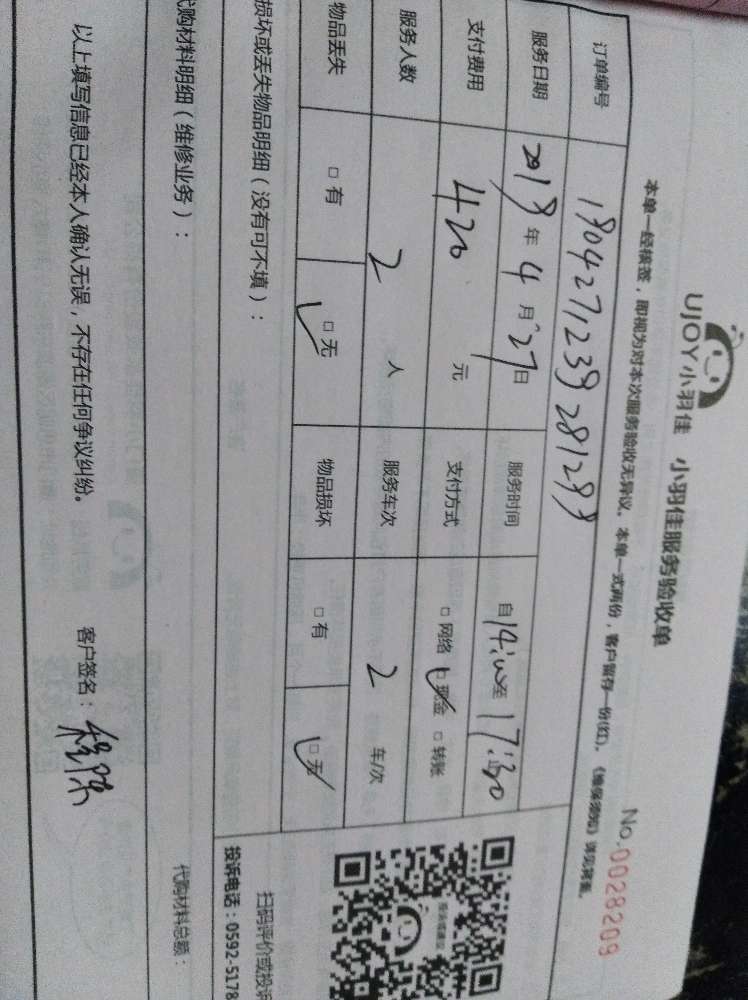 UJOY小羽佳 小羽佳服务验收单
No.0028209
本单一经核签，即视为对本次服务验收无异议。本单一式两份，客户留存一份(红)。《维保须知》详见背面。
订单编号
服务日期 2018年4月27日 服务时间 自14:00至17:30
支付费用 420元 支付方式 □网络 □现金 □转账
服务人数 2人 服务车次 2车/次
物品丢失 □有 □无 物品损坏 □有 □无
损坏或丢失物品明细（没有可不填）：
扫码评价或投诉
投诉电话：0592-5178
购材料明细（维修业务）：
代购材料总额：
以上填写信息已经本人确认无误，不存在任何争议纠纷。 客户签名：